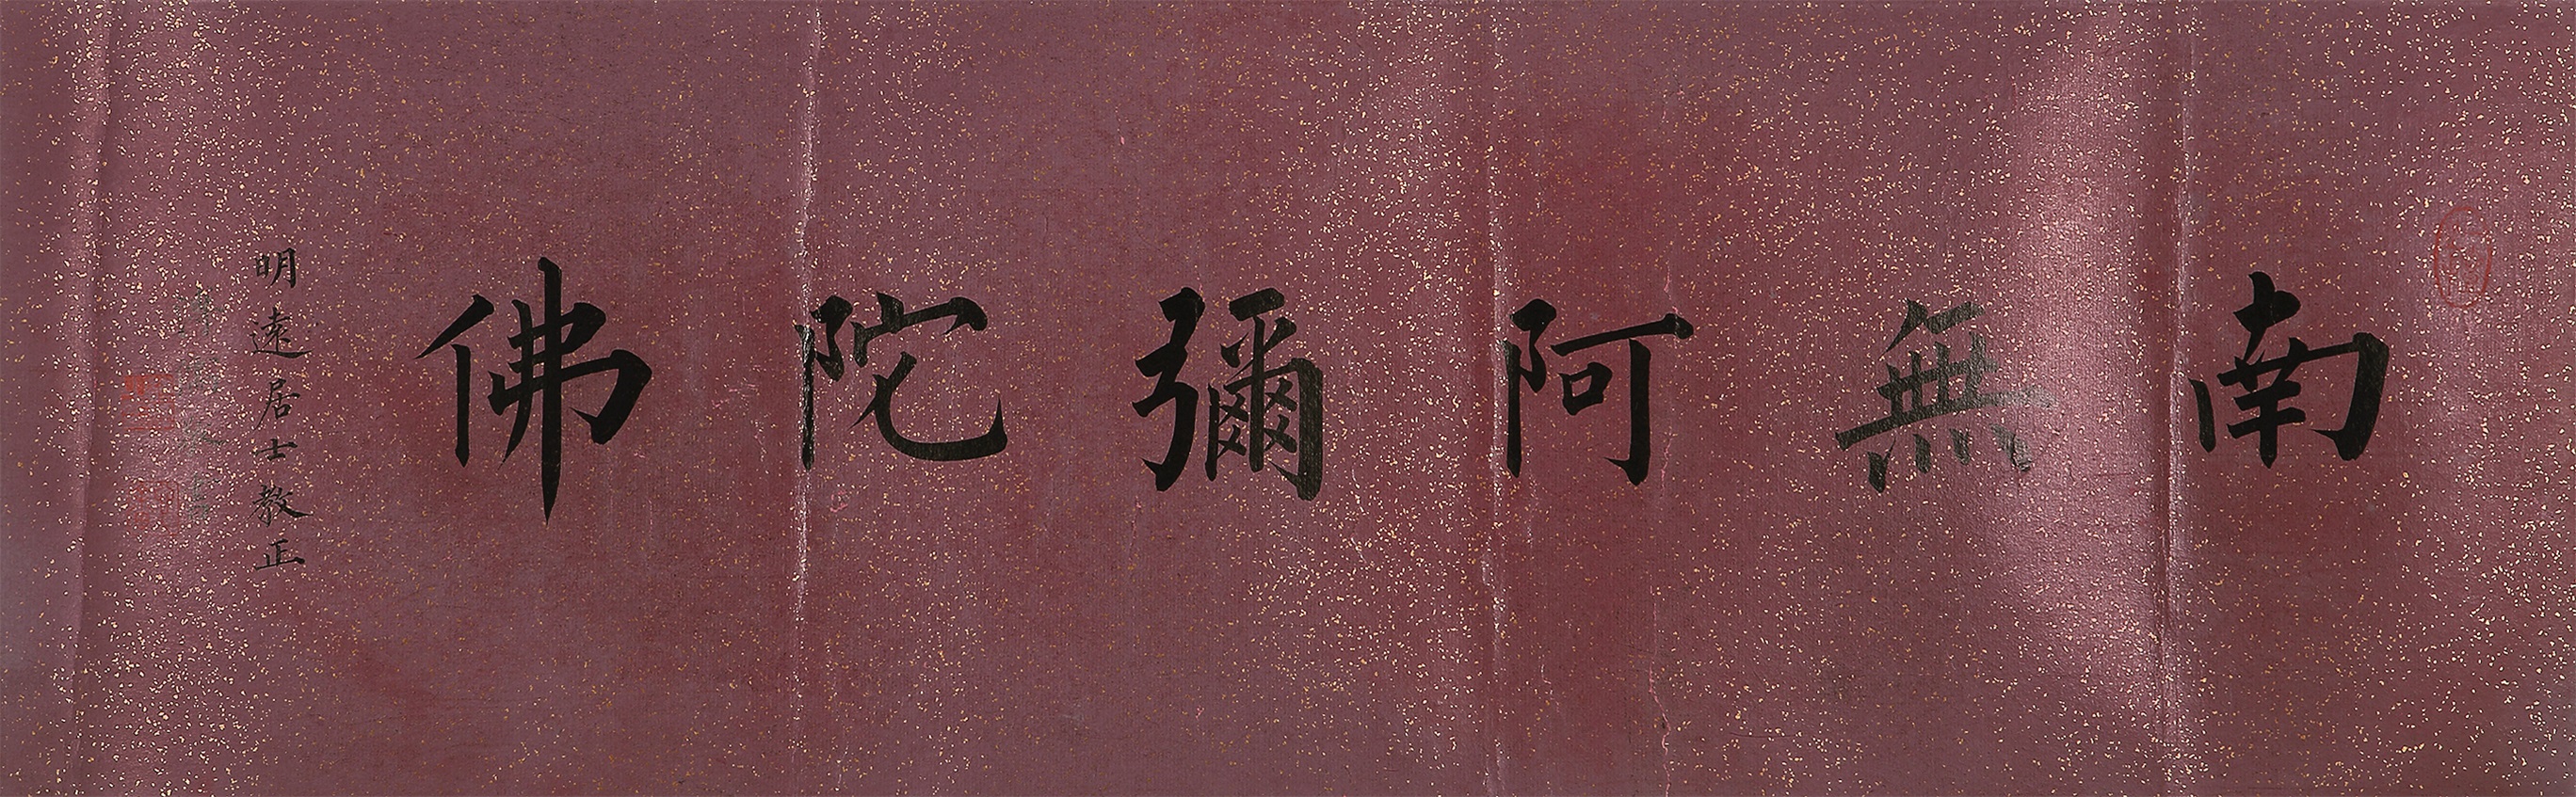 南無阿彌陀佛
明遠居士教正